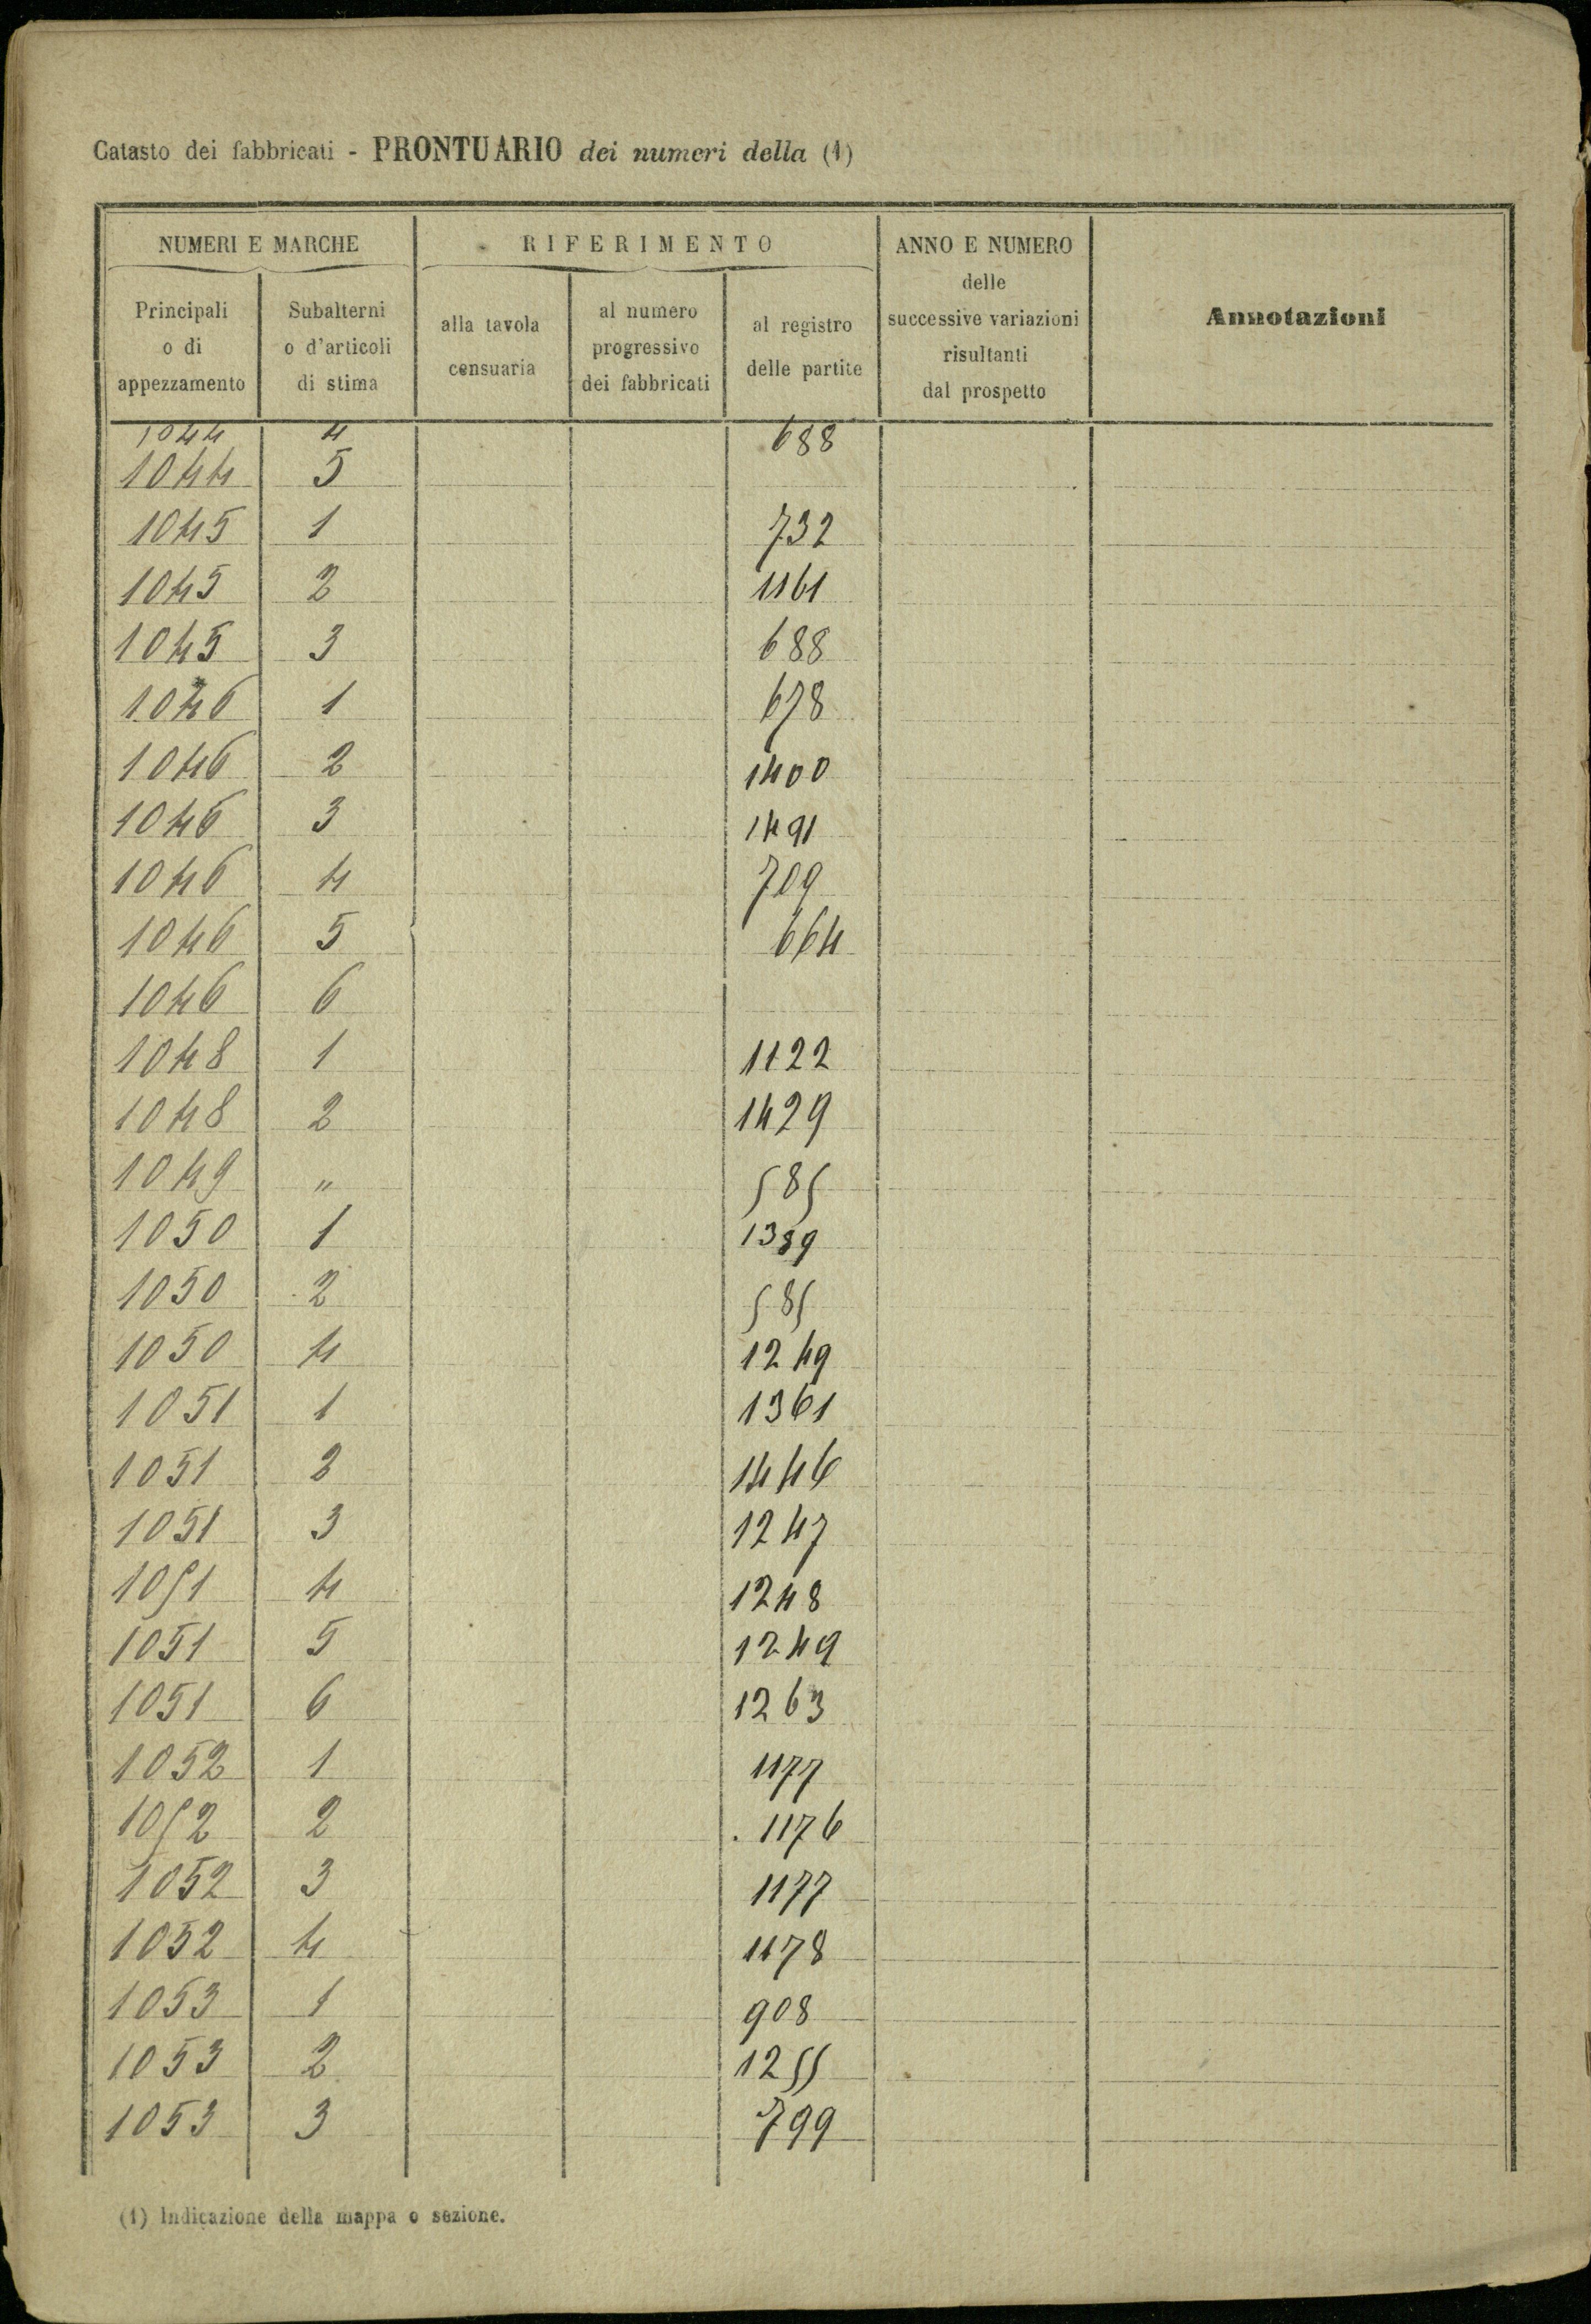 Catasto dei fabbricati - PRONTUARIO dei numeri della (1)
NUMERI E MARCHE
RIFERIMENTO
ANNO E NUMERO
delle
successive variazioni
risultanti
dal prospetto
Annotazioni
Principali
o di
appezzamento
Subalterni
o d'articoli
di stima
alla tavola
censuaria
al numero
progressivo
dei fabbricati
al registro
delle partite
1044 4 688
1044 5
1045 1 732
1045 2 1161
1045 3 688
1046 1 678
1046 2 1400
1046 3 1491
1046 4 709
1046 5 664
1046 6
1048 1 1122
1048 2 1429
1049 " 585
1050 1 1389
1050 2 585
1050 4 1249
1051 1 1361
1051 2 1446
1051 3 1247
1051 4 1248
1051 5 1249
1051 6 1263
1052 1 1177
1052 2 1176
1052 3 1177
1052 4 1178
1053 1 908
1053 2 1255
1053 3 799
(1) Indicazione della mappa o sezione.